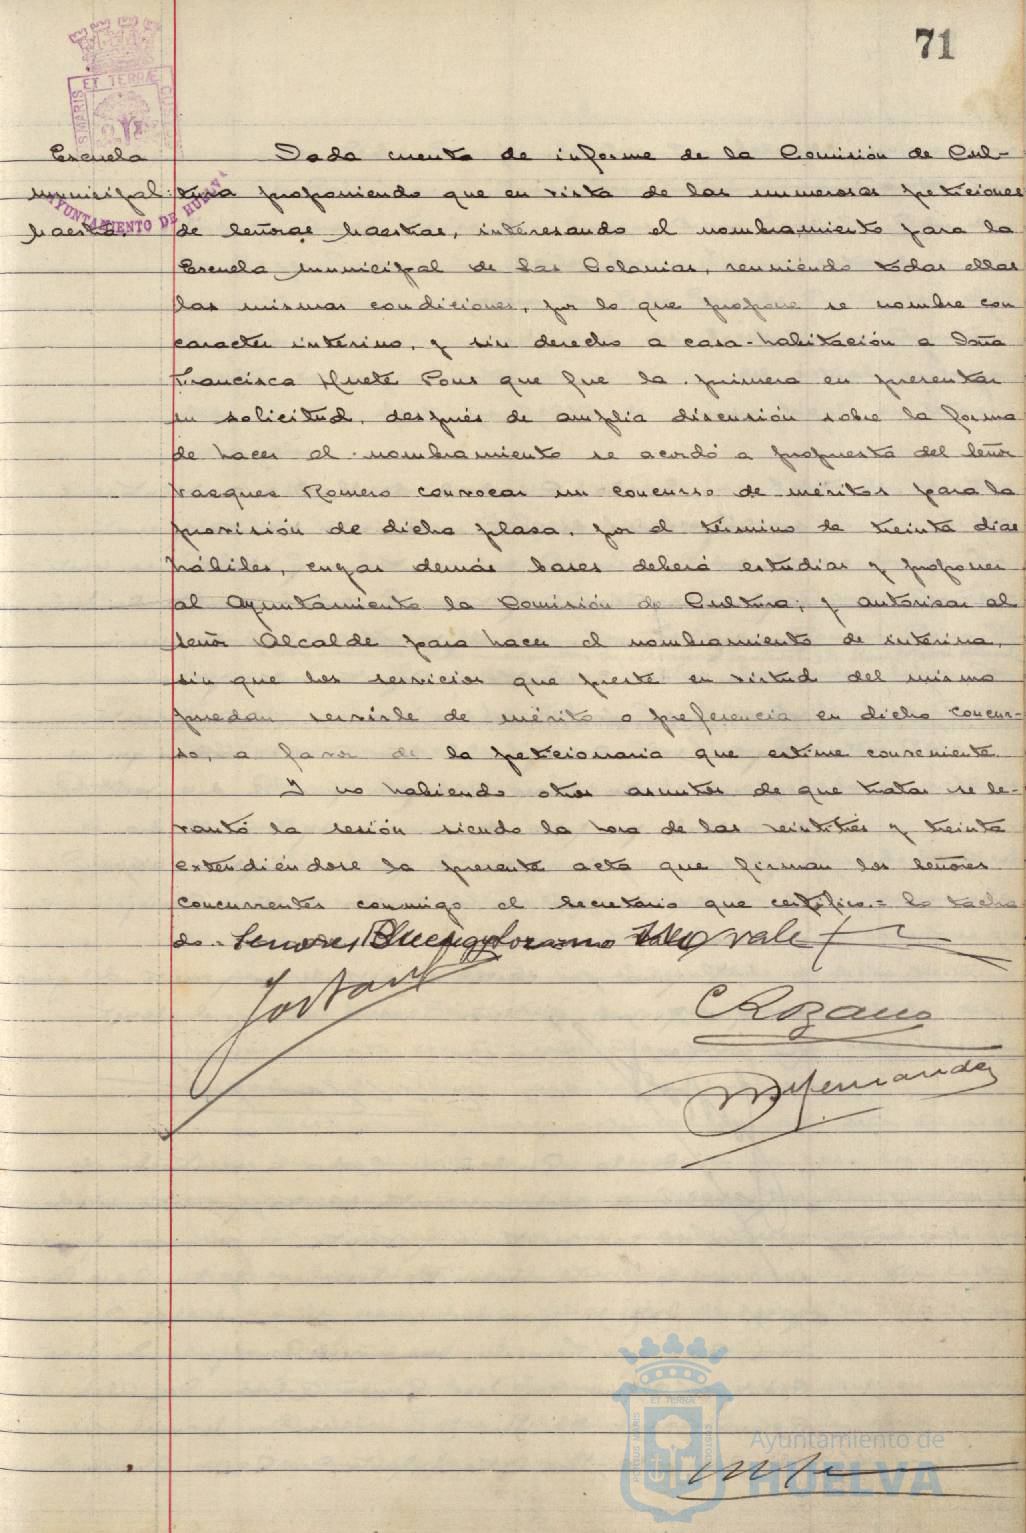 71
ET TERRÆ
S MARIS
AYUNTAMIENTO DE HUELVA
Escuela
municipal:
Maestra.
Dada cuenta de informe de la Comisión de Cul-
tura proponiendo que en vista de las numerosas peticiones
de Señoras Maestras, interesando el nombramiento para la
Escuela municipal de las Colonias, reuniendo todas ellas
las mismas condiciones, por lo que propone se nombre con
caracter interino, y sin derecho a casa-habitación a Doña
Francisca Huete Pous que fue la primera en presentar
su solicitud, después de amplia discusión sobre la forma
de hacer el nombramiento se acordó a propuesta del Señor
Vazques Romero convocar un concurso de méritos para la
provisión de dicha plasa, por el término de treinta dias
hábiles, cuyas demás bases deberá estudiar y proponer
al Ayuntamiento la Comisión de Cultura; y autorisar al
Señor Alcalde para hacer el nombramiento de interina,
sin que los servicios que preste en virtud del mismo
puedan servirle de mérito o preferencia en dicho concur-
so, a favor de la peticionaria que estime conveniente.
Y no habiendo otros asuntos de que tratar se le-
vantó la sesión siendo la hora de las veintitrés y treinta
extendiéndose la presente acta que firman los Señores
concurrentes conmigo el Secretario que certifico.= lo tacha
do - Señores vale
C Rozano
Hernandez
ET TERRA
Ayuntamiento de
HUELVA